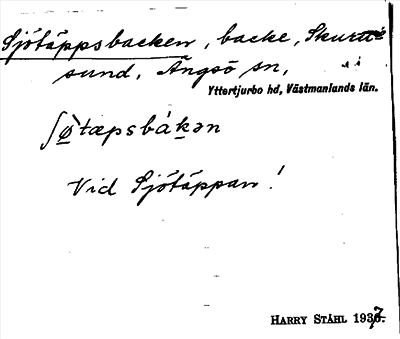 Sjötäppsbacken, backe, Skurusund, Ängsö sn,
Yttertjurbo hd, Västmanlands län.
ʃø̀tæpsbákən
Vid Sjötäppan!
HARRY STÅHL 1937.